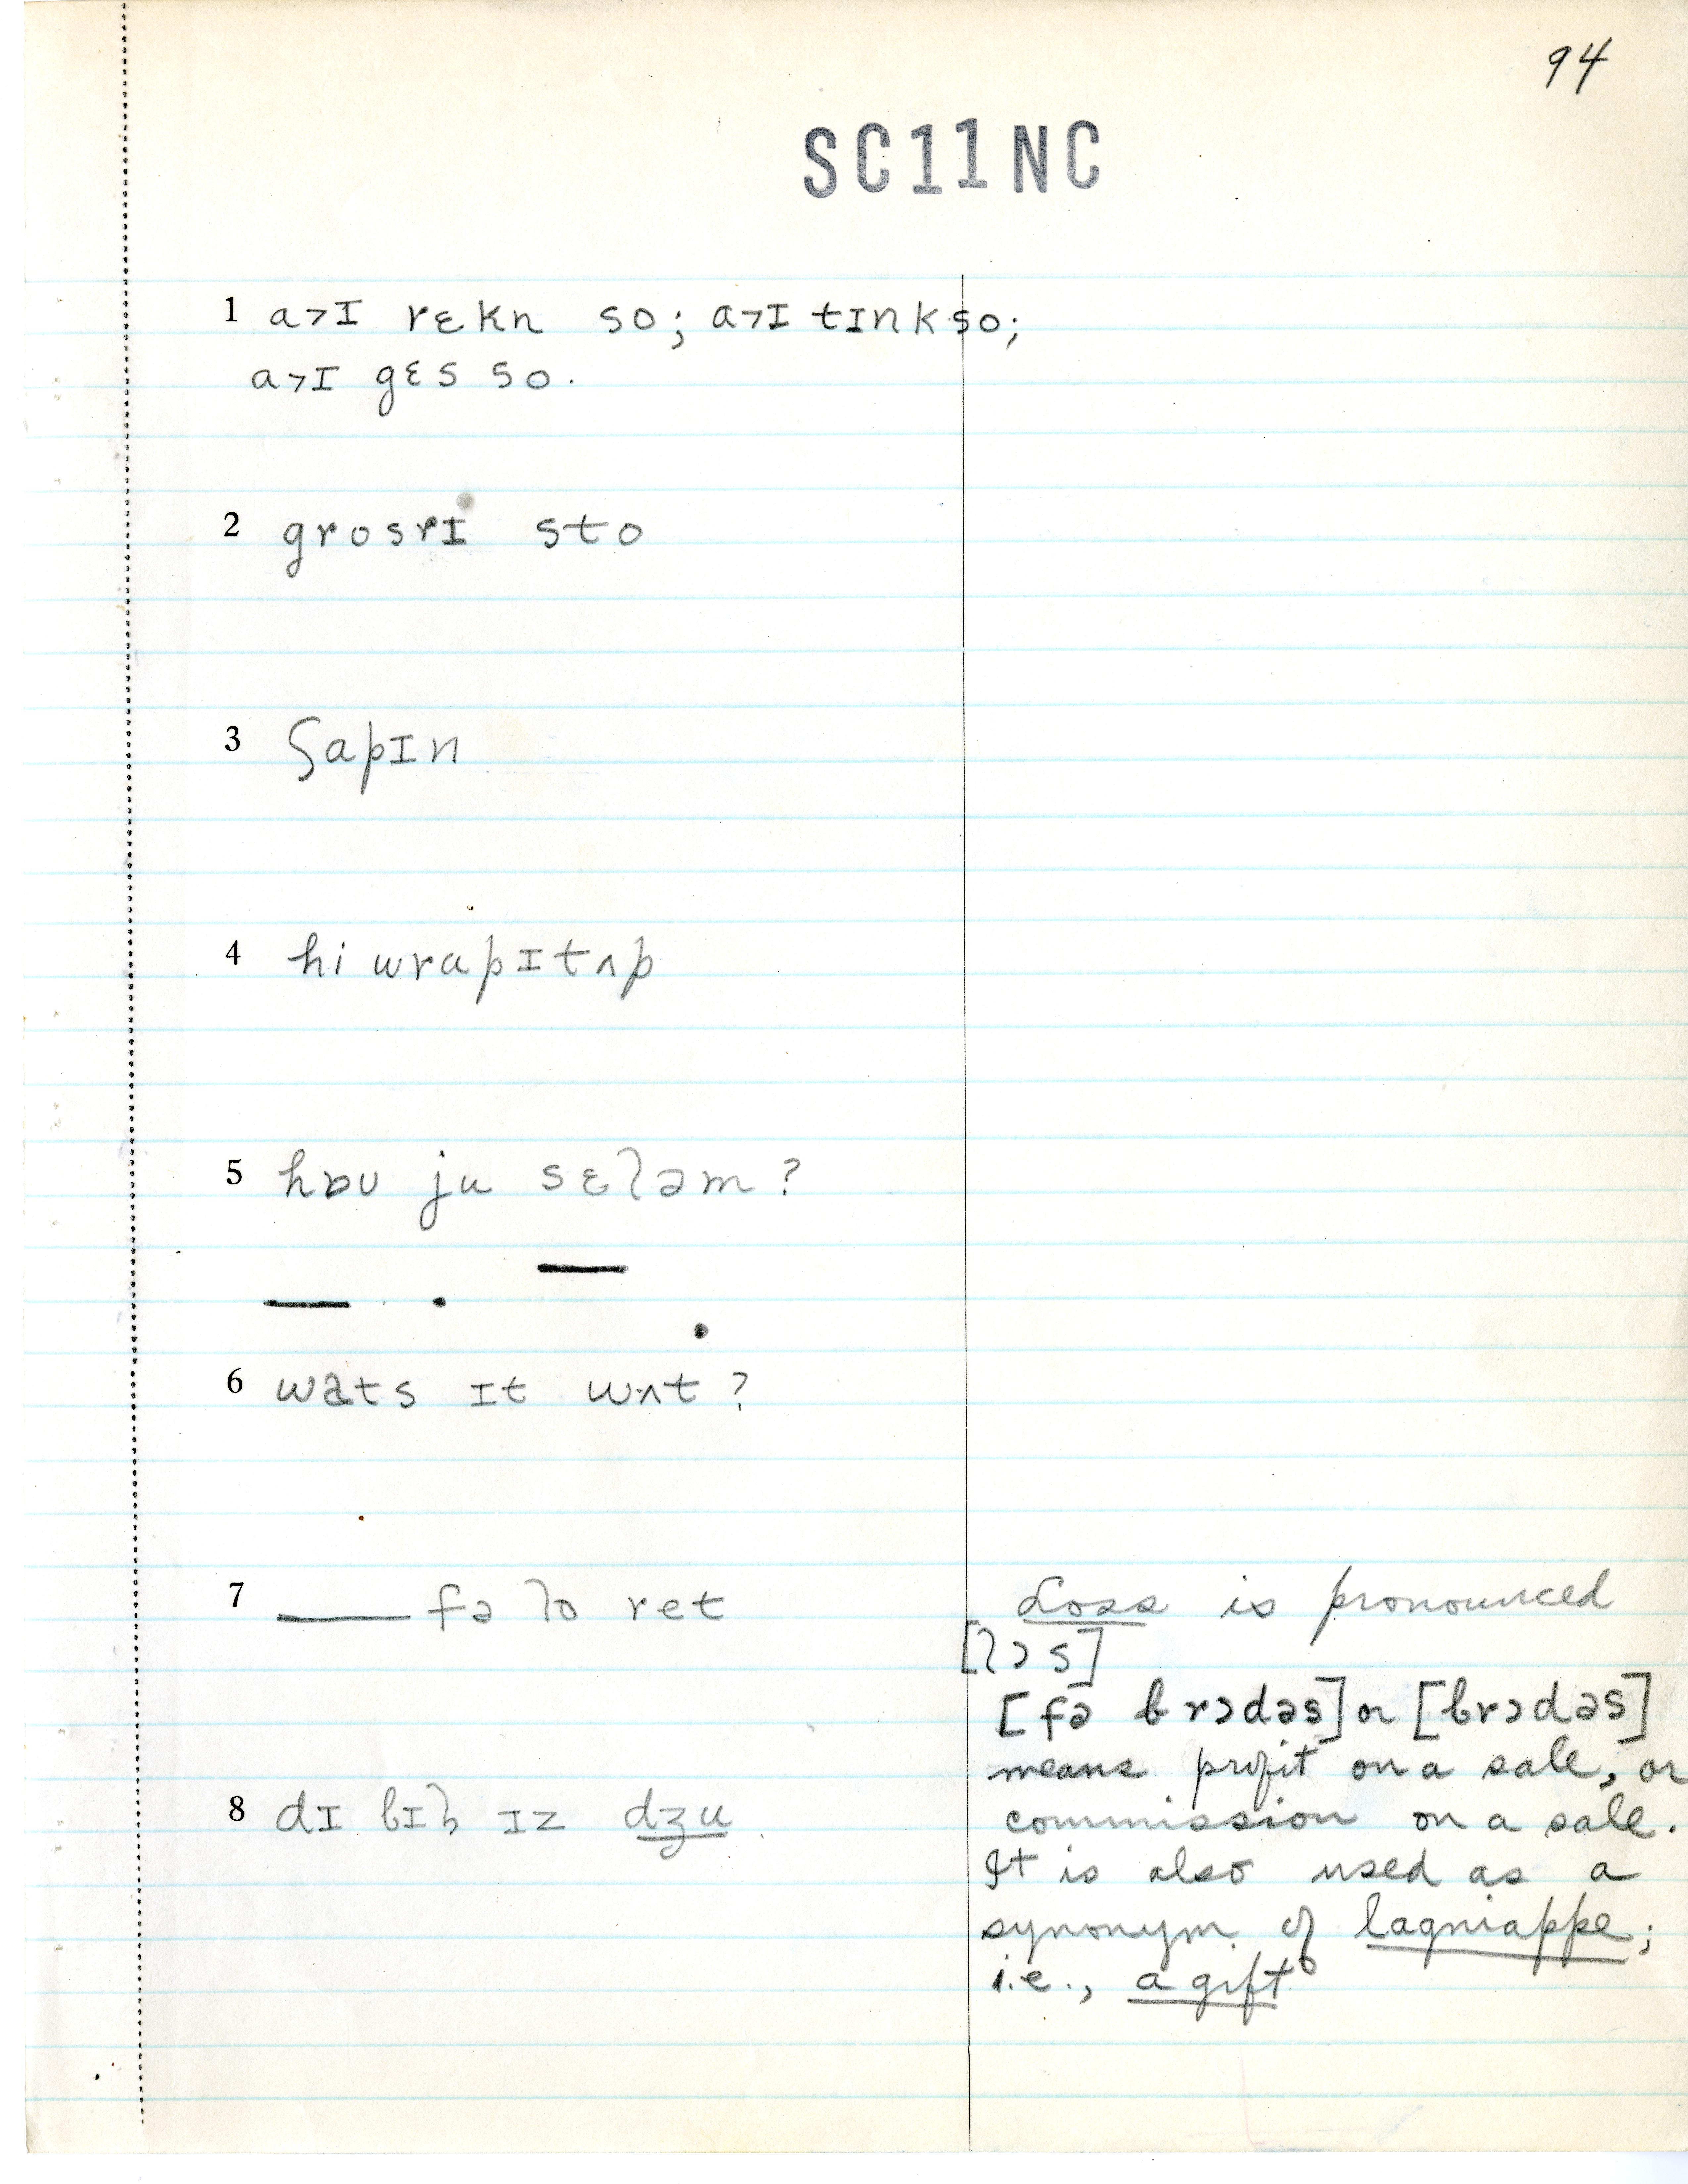 94
SC11NC
1 a>ɪ rɛkn so; a>ɪ tɪnk so;
a>ɪ gɛs so.
2 grosrɪ sto
3 ʃapɪn
4 hi wrapɪtʌp
5 hɒʊ ju sɛləm?
6 wats ɪt wʌt?
7 ___ fə lo ret
Loss is pronounced
[lɔs]
[fə brɔdəs] or [brɔdəs]
means profit on a sale, or
8 dɪ bɪl ɪz dʒu
commission on a sale.
It is also used as a
synonym of lagniappe;
i.e., a gift